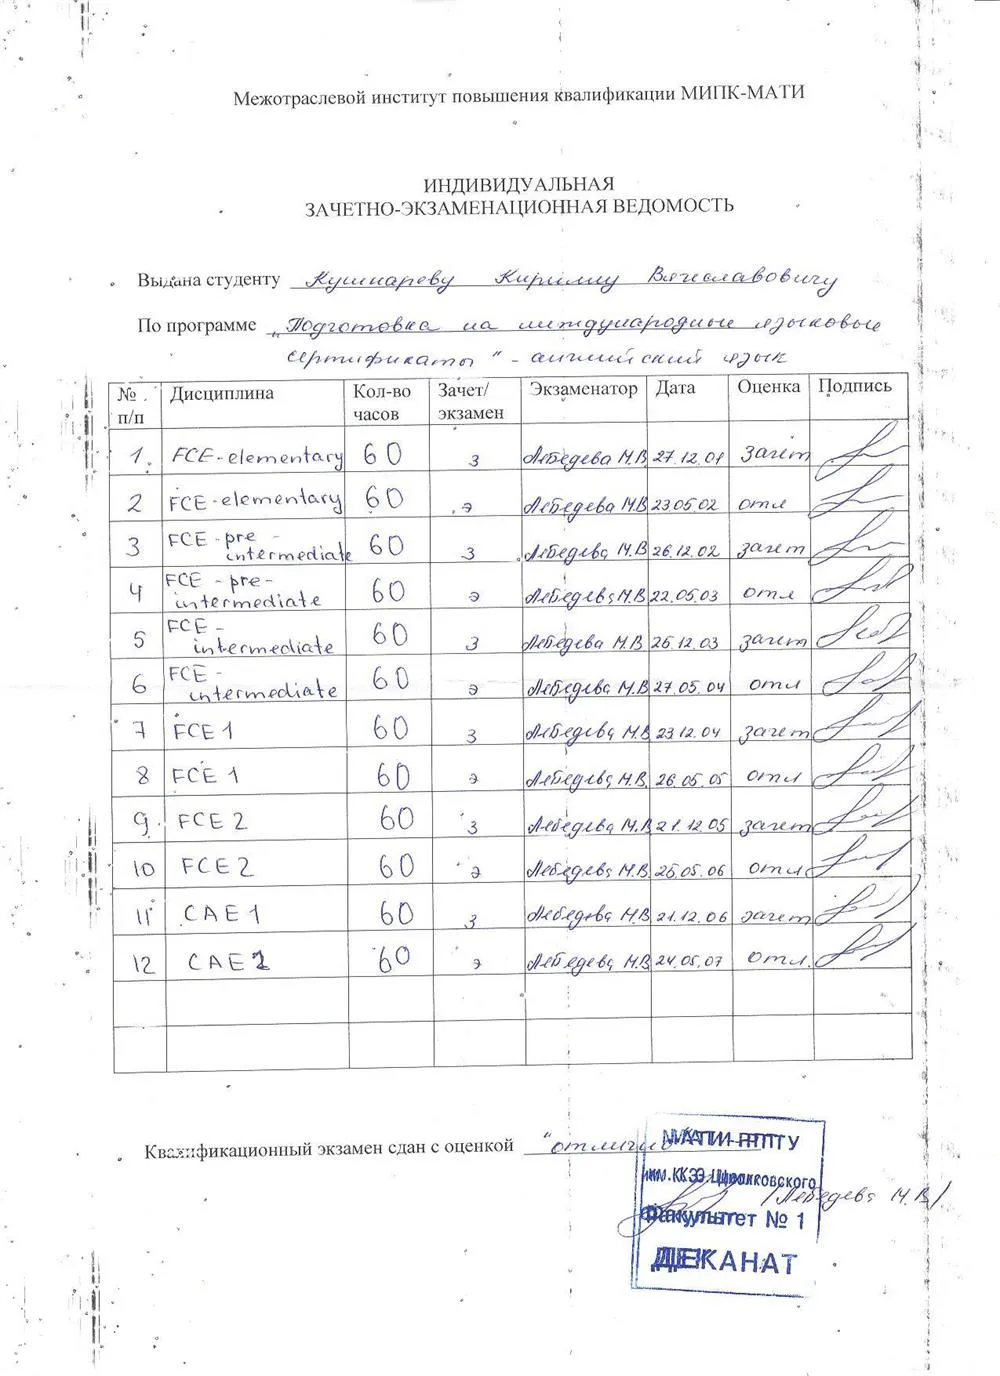 Межотраслевой институт повышения квалификации МИПК-МАТИ
ИНДИВИДУАЛЬНАЯ
ЗАЧЕТНО-ЭКЗАМЕНАЦИОННАЯ ВЕДОМОСТЬ
Выдана студенту Кушнареву Кириллу Вячеславовичу
По программе "Подготовка на международные языковые
сертификаты" - английский язык
№ п/п Дисциплина Кол-во часов Зачет/экзамен Экзаменатор Дата Оценка Подпись
1. FCE-elementary 60 З Лебедева М.В. 27.12.01 зачет
2 FCE-elementary 60 Э Лебедева М.В 23.05.02 отл
3 FCE-pre-intermediate 60 З Лебедева М.В 26.12.02 зачет
4 FCE-pre-intermediate 60 Э Лебедева М.В 22.05.03 отл
5 FCE-intermediate 60 З Лебедева М.В 25.12.03 зачет
6 FCE-intermediate 60 Э Лебедева М.В 27.05.04 отл
7 FCE 1 60 З Лебедева М.В. 23.12.04 зачет
8 FCE 1 60 Э Лебедева М.В. 26.05.05 отл
9. FCE 2 60 З Лебедева М.В. 21.12.05 зачет
10 FCE 2 60 Э Лебедева М.В. 25.05.06 отл
11 CAE 1 60 З Лебедева М.В. 21.12.06 зачет
12 CAE 2 60 Э Лебедева М.В. 24.05.07 отл.
Квалификационный экзамен сдан с оценкой "отлично"
МАТИ-РГТУ
им. К.Э. Циолковского
/Лебедева М.В/
Факультет № 1
ДЕКАНАТ